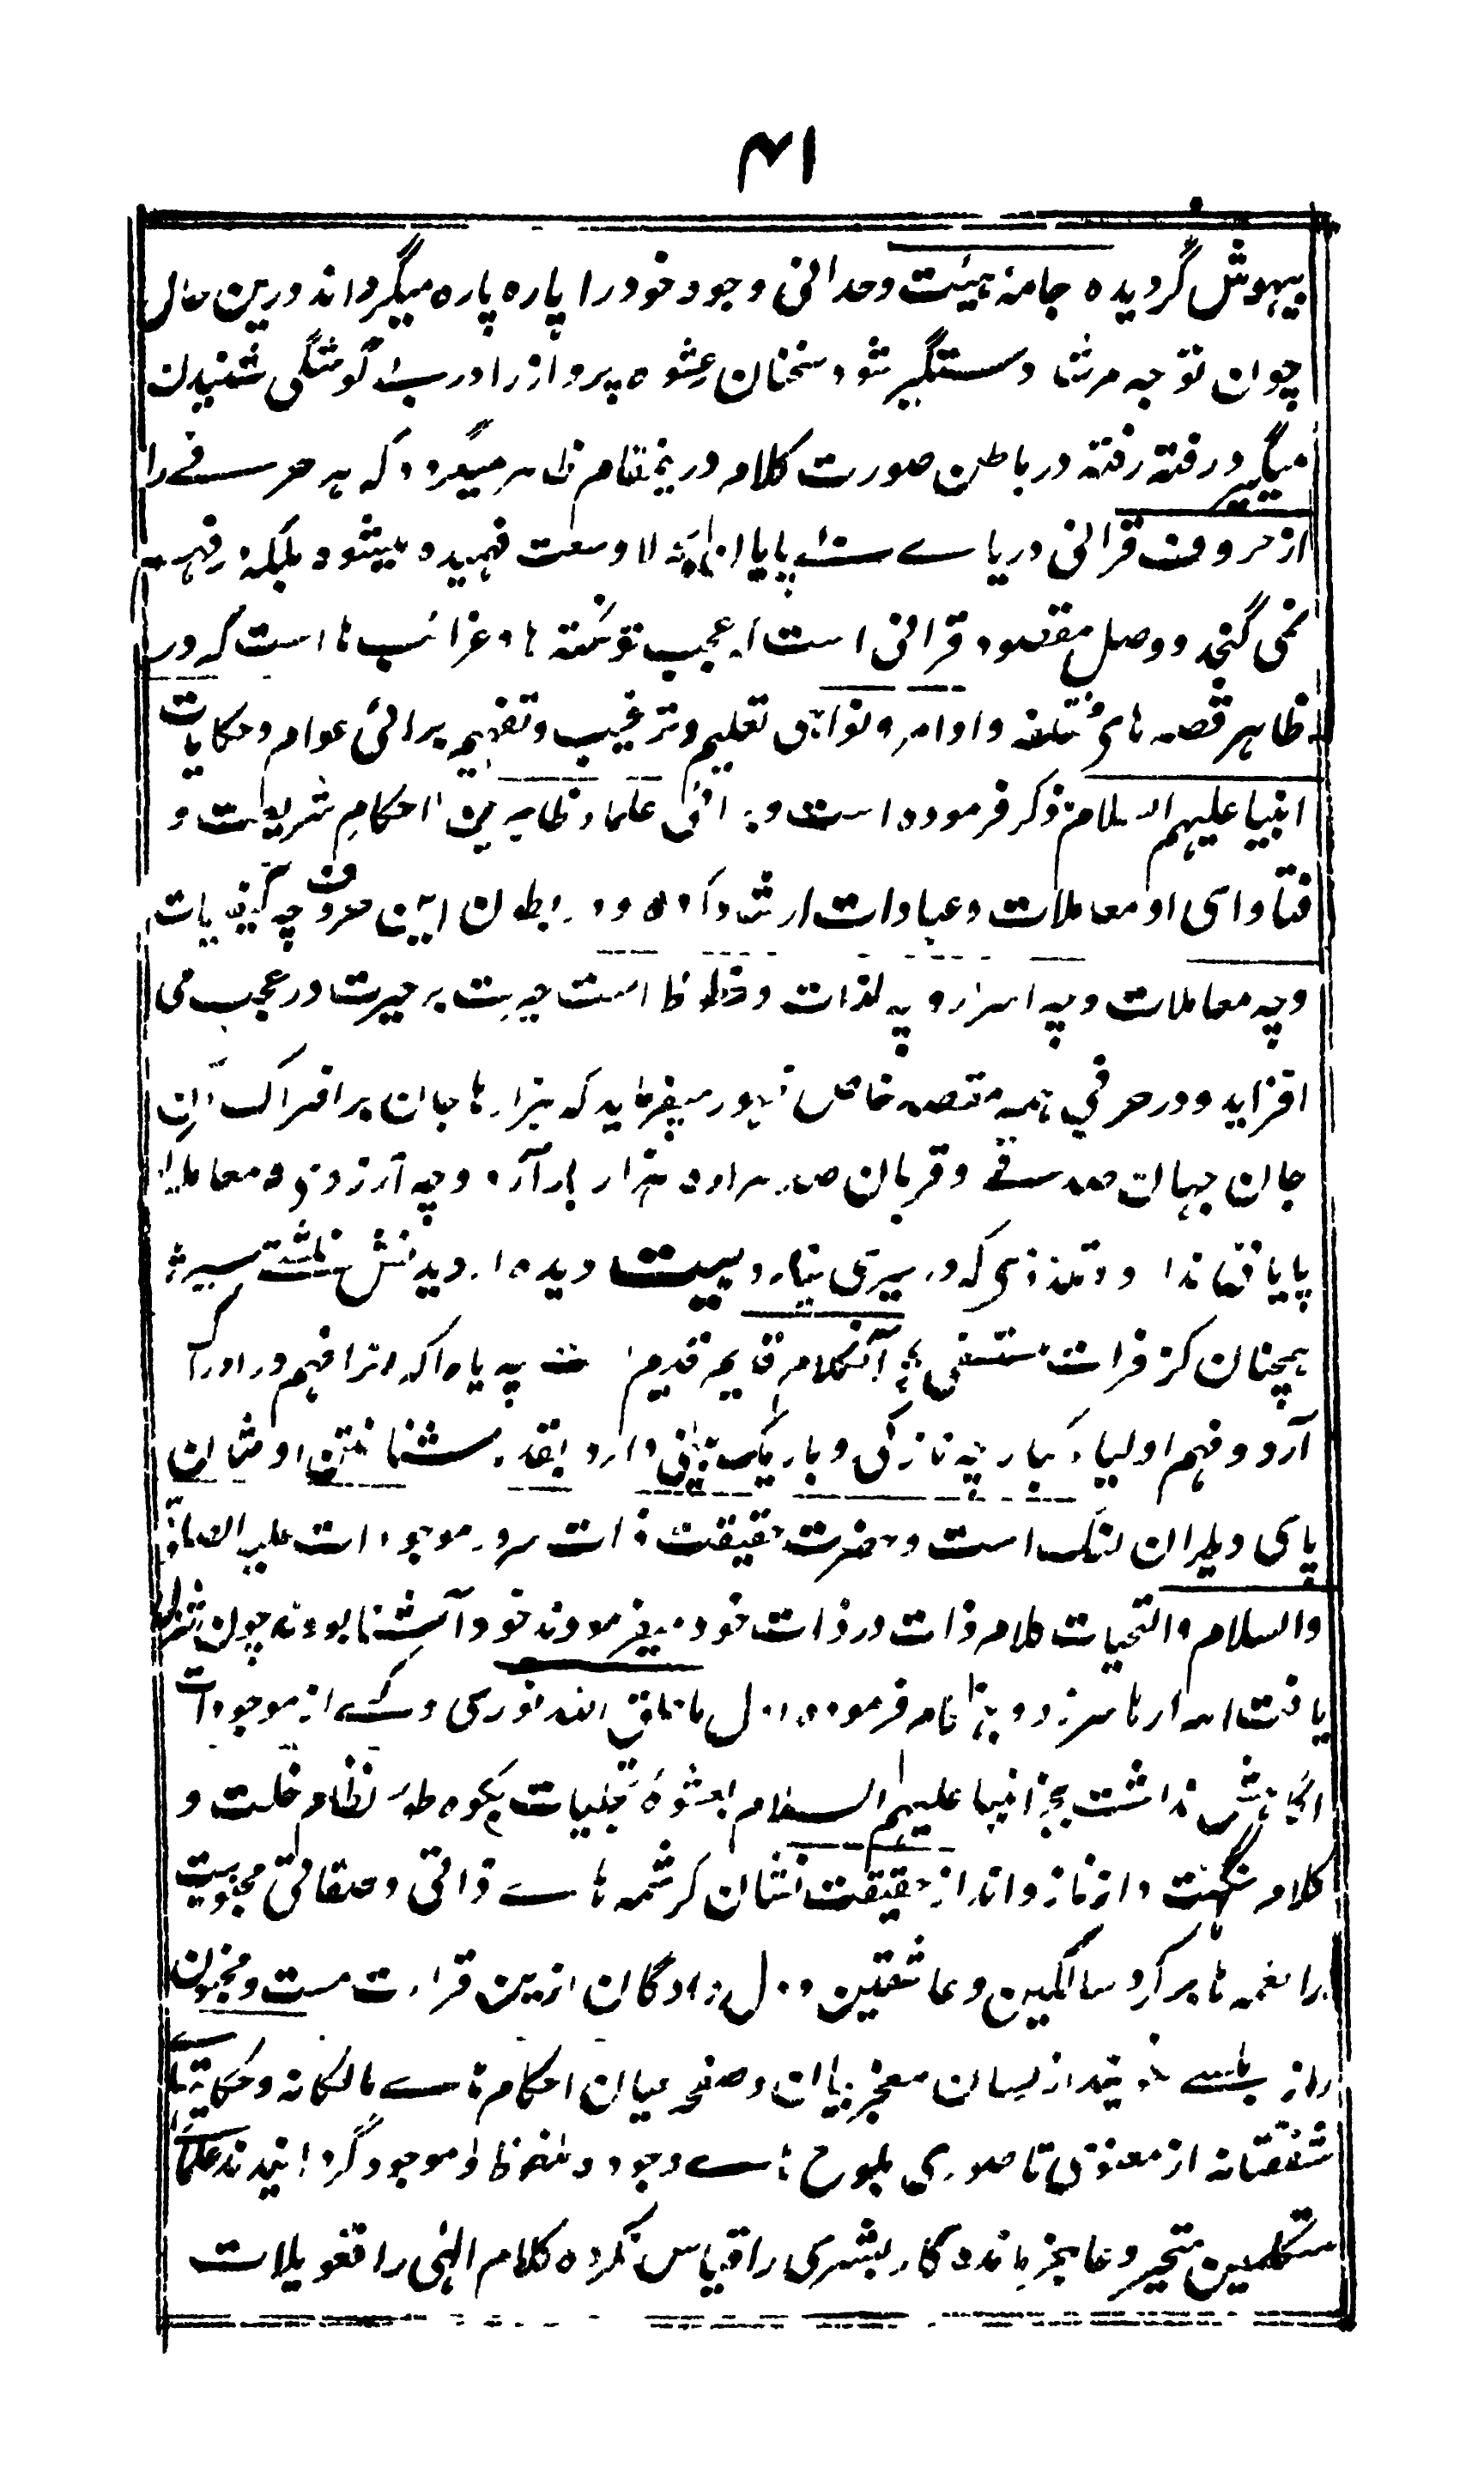 ۴۱
بیهوش گردیده جامۀ هیئت وحدانی وجود خود را پاره پاره میگرداند درین حال
چوان توجه مرشد دستگیر شود سخنان عشوه پرواز را در گوشگی شنیدن
میگیرد رفته رفته در باطن صورت کلام درینمقام ظاهر میگردد که هر حرفے را
از حروف قرانی دریاے بے پایان لا وسعت فهمیده میشود بلکه در فهم
نمی گنجد و وصل مقصود قرانی است عجب نوشته ها و غرائب ها است که در
ظاهر قصه های مختلفه و اوامر و نواهی تعلیم و ترغیب و تفهیم برائی عوام و حکایات
انبیا علیهم السلام ذکر فرموده است و علماء ظاهرین احکام شریعت و
فتاوای او معاملات و عبادات ارشاد داده و در بطون این حروف چه کیفیات
و چه معاملات و چه اسرار و چه لذات و حظوظ است حیرت بر حیرت در عجب می
افزاید و در حرفی همه مقصه خاص ظهور میفرماید که هزارها جان بر افتراک آن
جان جهان صدقے و قربان صد هزار بار آرد و چه آرزوی و معاملۀ
که در سیری نیارد بیت دیده از دیدنش نگشتے سیر
همچنان کز فرات مستسقی آنکلام قایم قدیم چه یاد اکه انرا فهم در ادراک
آرد و فهم اولیاء کبار چه نازکی و باریک بینی دارد بقدر شناختن اوشان
پای دلیران لنگ است و حضرت حقیقت ذات سرور موجودات علیه الصلوة
والسلام والتحیات کلام ذات در ذات خود میفرمودند خود آشنا بودند چون
یافت اسرار نامه فرموده اول ما خلق الله نوری و کسے از موجودات
نداشت بجز انبیا علیهم السلام بعشوۀ تجلیات بکوه طور نظام خلت و
کلام و از ناز و انداز حقیقت نشان کرشمه هاے ذاتی و صفاتی محبوبیت
را نغمه ها برآرد سالکین و عاشقین و دل دادگان ازین قراءت مست و مجنون
از لسان معجز بیان و صفحه عیان احکام هاے مالکانه و حکایتہا
شفقتانه از معنوی تا صوری بلوح هاے وجود و ملفوظ موجود گردانیدند علما
متکلمین متحیر و عاجز ماندند کار بشری را قیاس نکرده کلام الهی را تغویلات